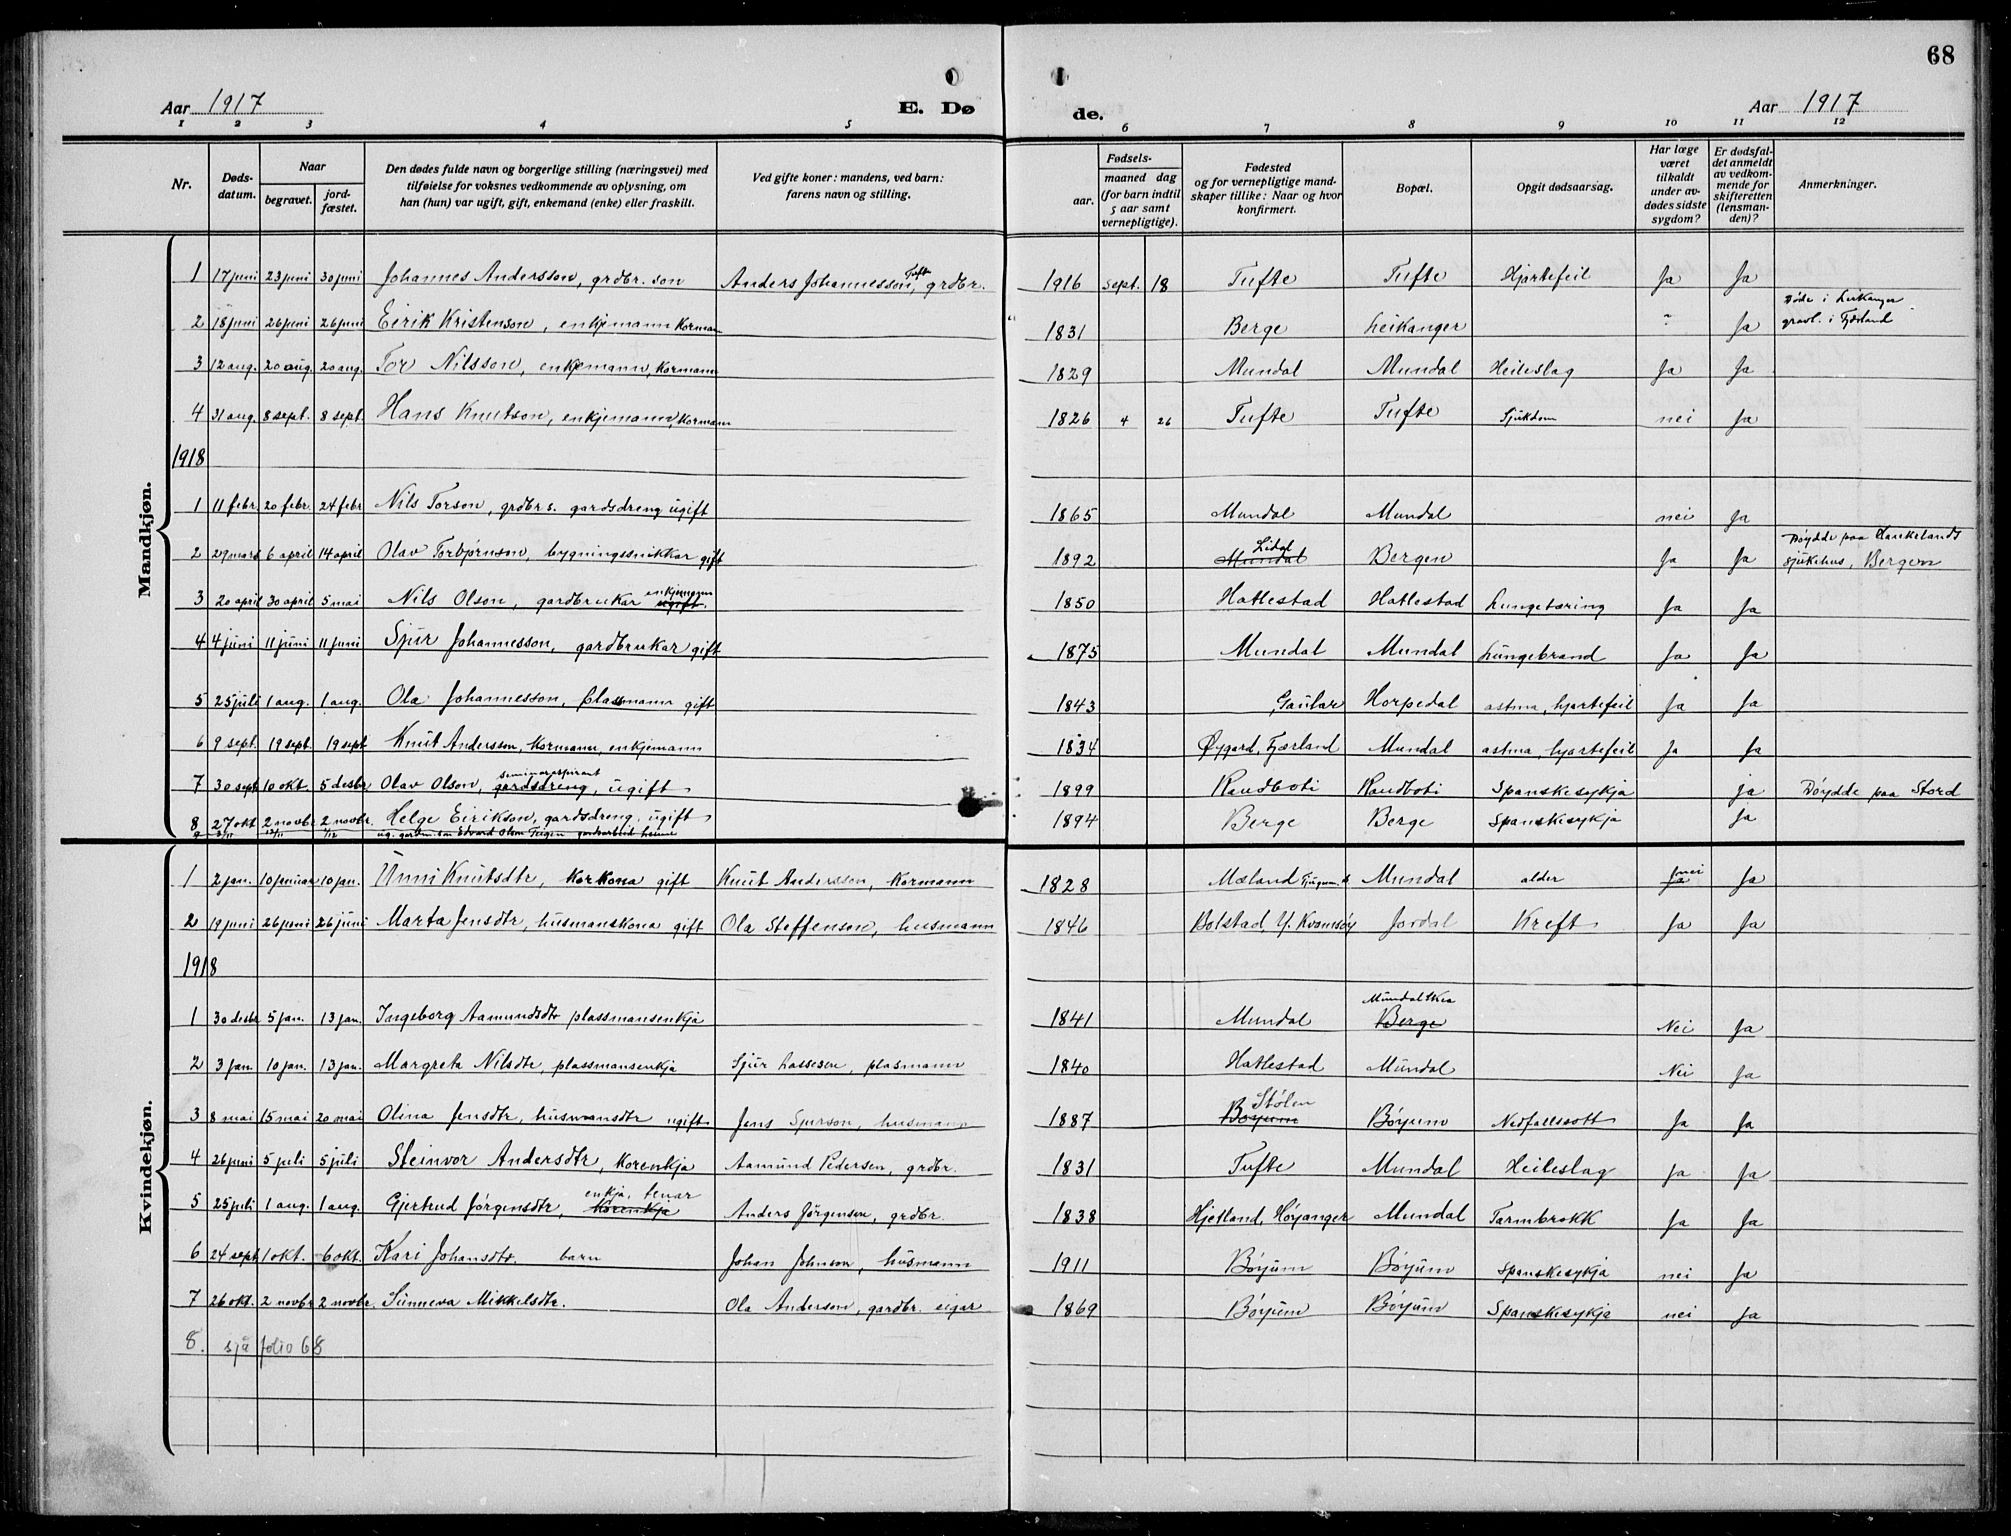 68
Aar 1917 E. Dø de. Aar 1917
1 2 3 4 5 6 7 8 9 10 11 12
Nr. | Døds-datum. | Naar begravet. | jord-fæstet. | Den dødes fulde navn og borgerlige stilling (næringsvei) med tilføielse for voksnes vedkommende av oplysning, om han (hun) var ugift, gift, enkemand (enke) eller fraskilt. | Ved gifte koner: mandens, ved barn: farens navn og stilling. | Fødsels- aar. | maaned | dag (for barn indtil 5 aar samt vernepligtige). | Fødested og for vernepligtige mand-skaper tillike: Naar og hvor konfirmert. | Bopæl. | Opgit dødsaarsag. | Har læge været tilkaldt under av-dødes sidste sygdom? | Er dødsfal-det anmeldt av vedkom-mende for skifteretten (lensman-den)? | Anmerkninger.
Mandkjøn.
1 | 17 juni | 23 juni | 30 juni | Johannes Andersson, grdbr. son | Anders Johannesson Tufte, grdbr. | 1916 | sept. | 18 | Tufte | Tufte | Hjartefeil | Ja | Ja
2 | 18 juni | 26 juni | 26 juni | Eirik Kristenson, enkjemann Kormann | 1831 | Berge | Leikanger | ~ | Ja | Døde i Leikanger gravl. i Fjærland
3 | 12 aug. | 20 aug. | 20 aug. | Tor Nilsson, enkjemann, Kormann | 1829 | Mundal | Mundal | Heileslag | Ja | Ja
4 | 31 aug. | 8 sept. | 8 sept. | Hans Knutson, enkjemann, Kormann | 1826 | 4 | 26 | Tufte | Tufte | Sjukdom | nei | Ja
1918
1 | 11 febr. | 20 febr. | 24 febr | Nils Torson, grdbrs. gardsdreng ugift | 1865 | Mundal | Mundal | nei | Ja
2 | 29 mars | 6 april | 14 april | Olav Torbjørnson, bygningssnikkar gift | 1892 | Mundal Lidal | Bergen | Ja | Ja | Døydde paa Haukelands sjukehus, Bergen
3 | 20 april | 30 april | 5 mai | Nils Olson, gardbrukar ugift. enkjemann | 1850 | Hatlestad | Hatlestad | Lungetæring | Ja | Ja
4 | 4 juni | 11 juni | 11 juni | Sjur Johannesson, gardbrukar gift | 1875 | Mundal | Mundal | Lungebrand | Ja | Ja
5 | 25 juli | 1 aug. | 1 aug. | Ola Johannesson, Plassmann gift | 1843 | Gaular | Horpedal | astma, hjartefeil | Ja | Ja
6 | 9 sept. | 19 sept. | 19 sept | Knut Andersson, Kormann, enkjemann | 1834 | Øygard, Fjærland | Mundal | astma, hjartefeil | Ja | Ja
7 | 30 sept | 10 okt. | 5 desbr | Olav Olson, gardsdreng, seminaraspirant ugift | 1899 | Raudboti | Raudboti | Spanskesykja | ja | Døydde paa Stord
8 | 27 okt | 2 novbr | 2 novbr. | Helge Eirikson, gardsdreng, ugift | 1894 | Berge | Berge | Spanskesykja | ja
9 | 3/11 | 12/11 | 1/12 | ug. gardm. son Edvard Olson Teigen gardsarbeid heime
Kvindekjøn.
1 | 2 jan. | 10 januar | 10 jan. | Unni Knutsdtr, Korkona gift | Knut Andersson, Kormann | 1828 | Mæland | Mundal | alder | Ja nei | Ja
2 | 19 juni | 26 juni | 26 juni | Marta Jensdtr, husmanskona gift | Ola Steffenson, husmann | 1846 | Bolstad, Y. Kvamsøy | Jordal | Kreft | Ja | Ja
1918
1 | 30 desbr | 5 jan. | 13 jan. | Ingeborg Aamundsdtr plassmansenkja | 1841 | Mundal | Berge | Nei | Ja
2 | 3 jan. | 10 jan. | 13 jan. | Margreta Nilsdtr, plassmansenkja | Sjur Lassesen, plasmann | 1840 | Hatlestad | Mundal | Nei | Ja
3 | 8 mai | 15 mai | 20 mai | Olina Jensdtr, husmansdtr ugift | Jens Sjurson, husmann | 1887 | Bøyum Stølen | Bøyum | Nedfallssott | Ja | Ja
4 | 26 juni | 5 juli | 5 juli | Steinvor Andersdtr, Korenkja | Aamund Pedersen, grdbr. | 1831 | Tufte | Mundal | Heileslag | Ja | Ja
5 | 25 juli | 1 aug. | 1 aug. | Gjertrud Jørgensdtr, Korenkja enkja, tenar | Anders Jørgensen, grdbr. | 1838 | Hjetland, Høyanger | Mundal | Tarmbrokk | Ja | Ja
6 | 24 sept. | 1 okt. | 6 okt. | Kari Johansdtr. barn | Johan Johnson, husmann | 1911 | Bøyum | Bøyum | Spanskesykja | nei | Ja
7 | 26 okt. | 2 novbr | 2 novbr. | Sunneva Mikkelsdtr. | Ola Anderson, gardbr. eigar | 1869 | Bøyum | Bøyum | Spanskesykja | nei | Ja
8. | sjå folio 68